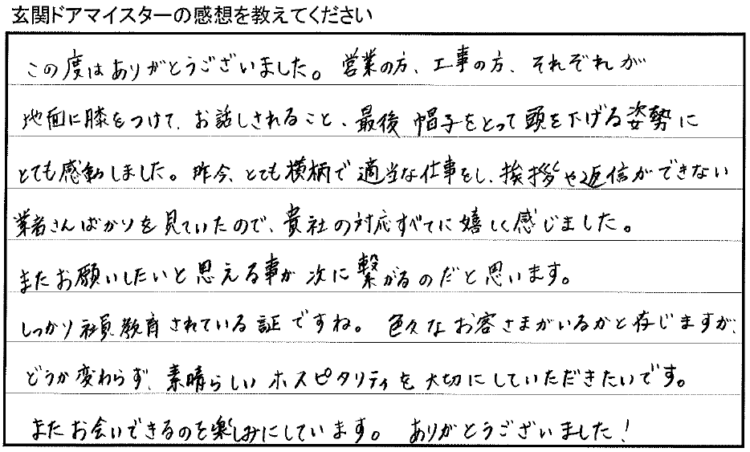 玄関ドアマイスターの感想を教えてください
この度はありがとうございました。営業の方、工事の方、それぞれが
地面に膝をつけて、お話しされること、最後 帽子をとって頭を下げる姿勢に
とても感動しました。昨今、とても横柄で適当な仕事をし、挨拶や返信ができない
業者さんばかりを見ていたので、貴社の対応すべてに嬉しく感じました。
またお願いしたいと思える事が次に繋がるのだと思います。
しっかり社員教育されている証ですね。色々なお客さまがいるかと存じますが、
どうか変わらず、素晴らしいホスピタリティを大切にしていただきたいです。
またお会いできるのを楽しみにしています。ありがとうございました!